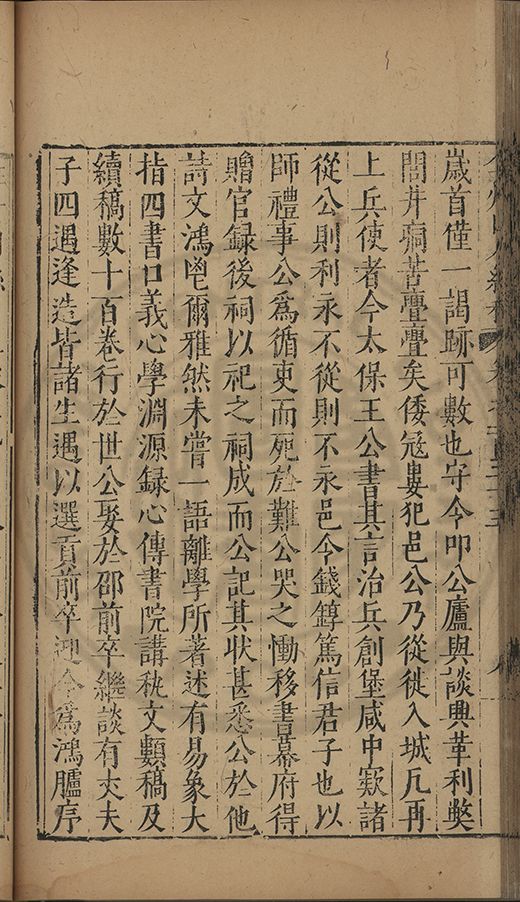 歲首僅一謁跡可數也守令叩公廬與談興革利獘
閭井痾苦亹亹矣倭冦婁犯邑公乃從徙入城凡再
上兵使者今太保王公書其言治兵創堡咸中窾諸
從公則利永不從則不永邑令錢錞篤信君子也以
師禮事公爲循吏而死於難公哭之慟移書幕府得
贈官録後祠以祀之祠成而公記其状甚悉公於他
詩文鴻鬯爾雅然未嘗一語離學所著述有易象大
指四書口義心學淵源録心傳書院講秇文顜稿及
續稿數十百卷行於世公娶於邵前卒繼談有丈夫
子四遇逢造皆諸生遇以選貢前卒迎今爲鴻臚序